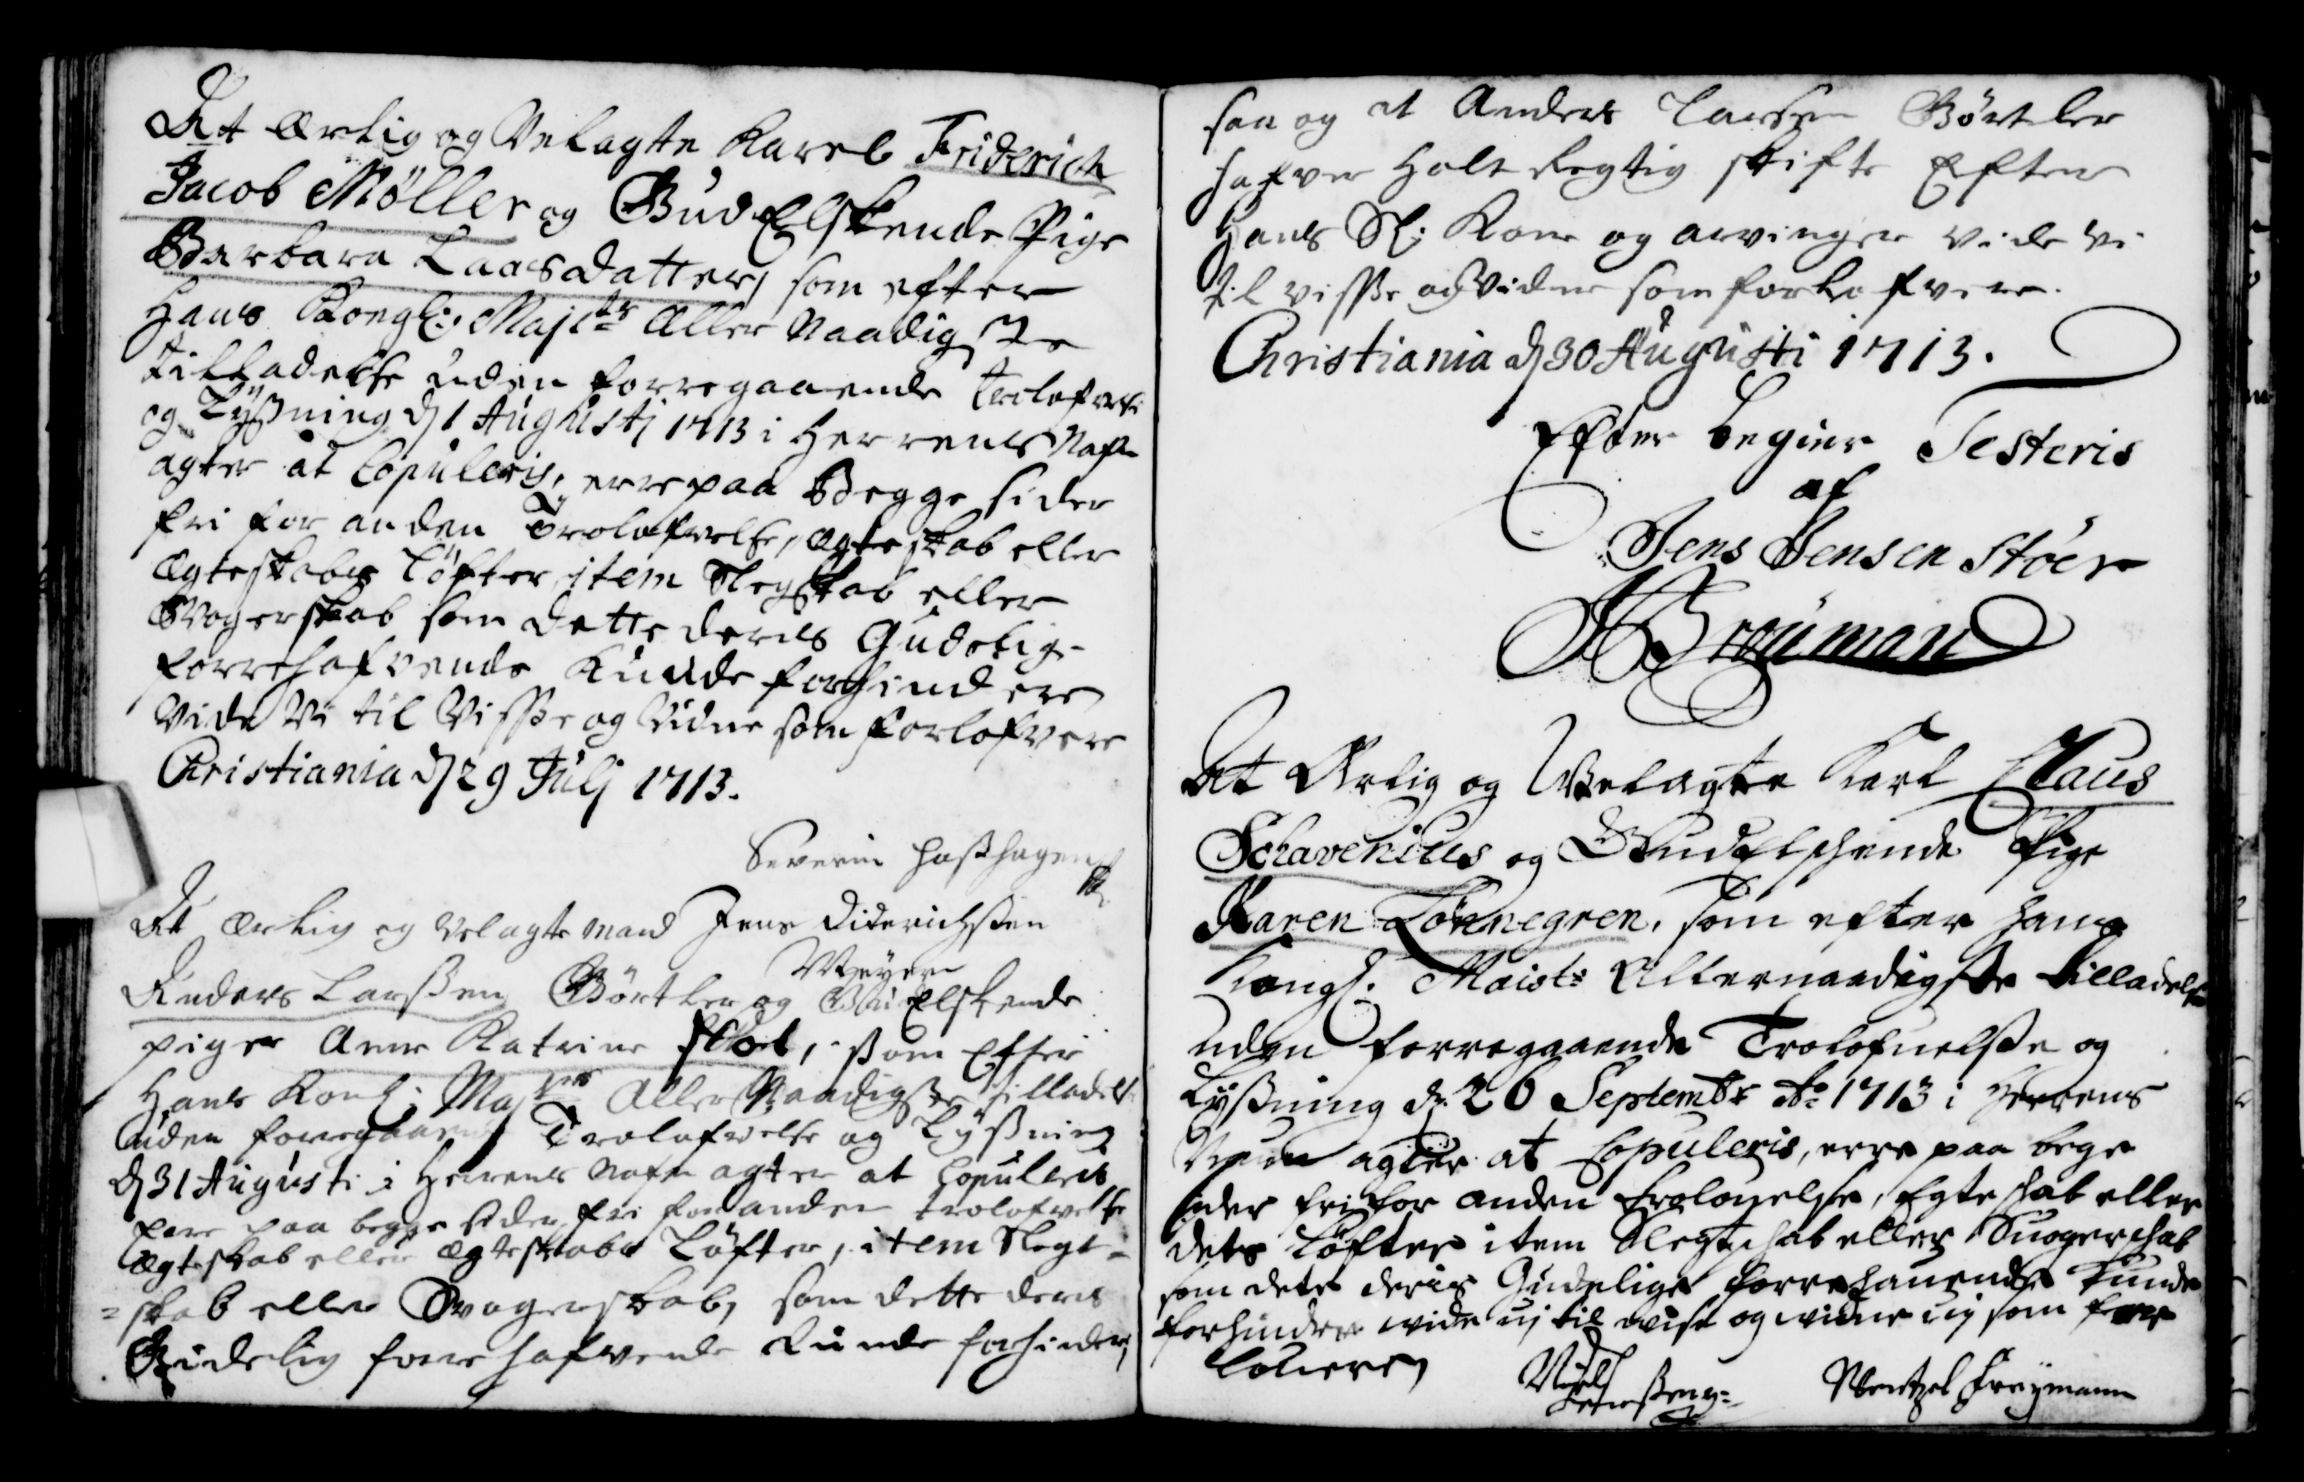 At Ærlig og Velagte Karel Friderich
Jacob Møller og Gud Elskende Pige
Barbara Laarsdatter, som efter
Hans Kongl: Majets Aller Naadigste
tilladelse uden forregaaende Trolofvelse
og Lyßning d 1 Augustj 1713 i Herrens Nafn
agter at Copuleris, erre paa Begge sider
fri for anden Trolofvelse, ægteskab eller
Ægteskabs Løfter, item Slegskab eller
Svogerskab som dette deres Gudelige
forrehafvende Kunde forhindere
Vide Vi til Visse og Vidne som forlofvere
Christiania d 29 Julj 1713.
Severin Haßhagen
At Ærlig og Velagte mand Jens Diderichsen
Meyer
Anders Larßen Børtler og Gud Elskende
piger Anne Katrine, som Efter
Hans Konl: Majts Aller Naadigste tilladelse
uden forregaaende Trolofvelse og Lyßning
d 31 Augusti i Herrens Nafn agter at Copuleris
Erre paa begge sider fri for anden trolofvelse
ægteskab eller ægteskabs Løfter, item Slegt-
=skab eller Svogerskab, som dette deres
Gudelig forrehafvende kunde forhinder,
saa og at Anders Larsen Børtler
hafver Holt Rigtig skifte Efter
Hans Sl: Kone og arvinger vide Vi
til visse og Vidne som forlofvere.
Christiania d 30 Augusti 1713.
Efter begier Testeris
af
Jens Jensen Støer
At Ærlig og Welagte Karl Claus
Schavenius og Gudelschende Pige
Karen Tønnegren, som efter hans
Kongl. Maists Allernaadigste Tilladelse
uden forregaaende Trolofuelse og
Lyßning d. 26 Septembr Ao 1713 i Herrens
Naun agter at Copuleris, erre paa bege
sider fri for anden trolouelse, Egteschab eller
dets løfter item Slegtschab eller Suogerschab
som dete deris Gudelige forrehauende Kunde
forhindre wide uj til wise og widne uj som for
louere
Niels Wentzel Freymann